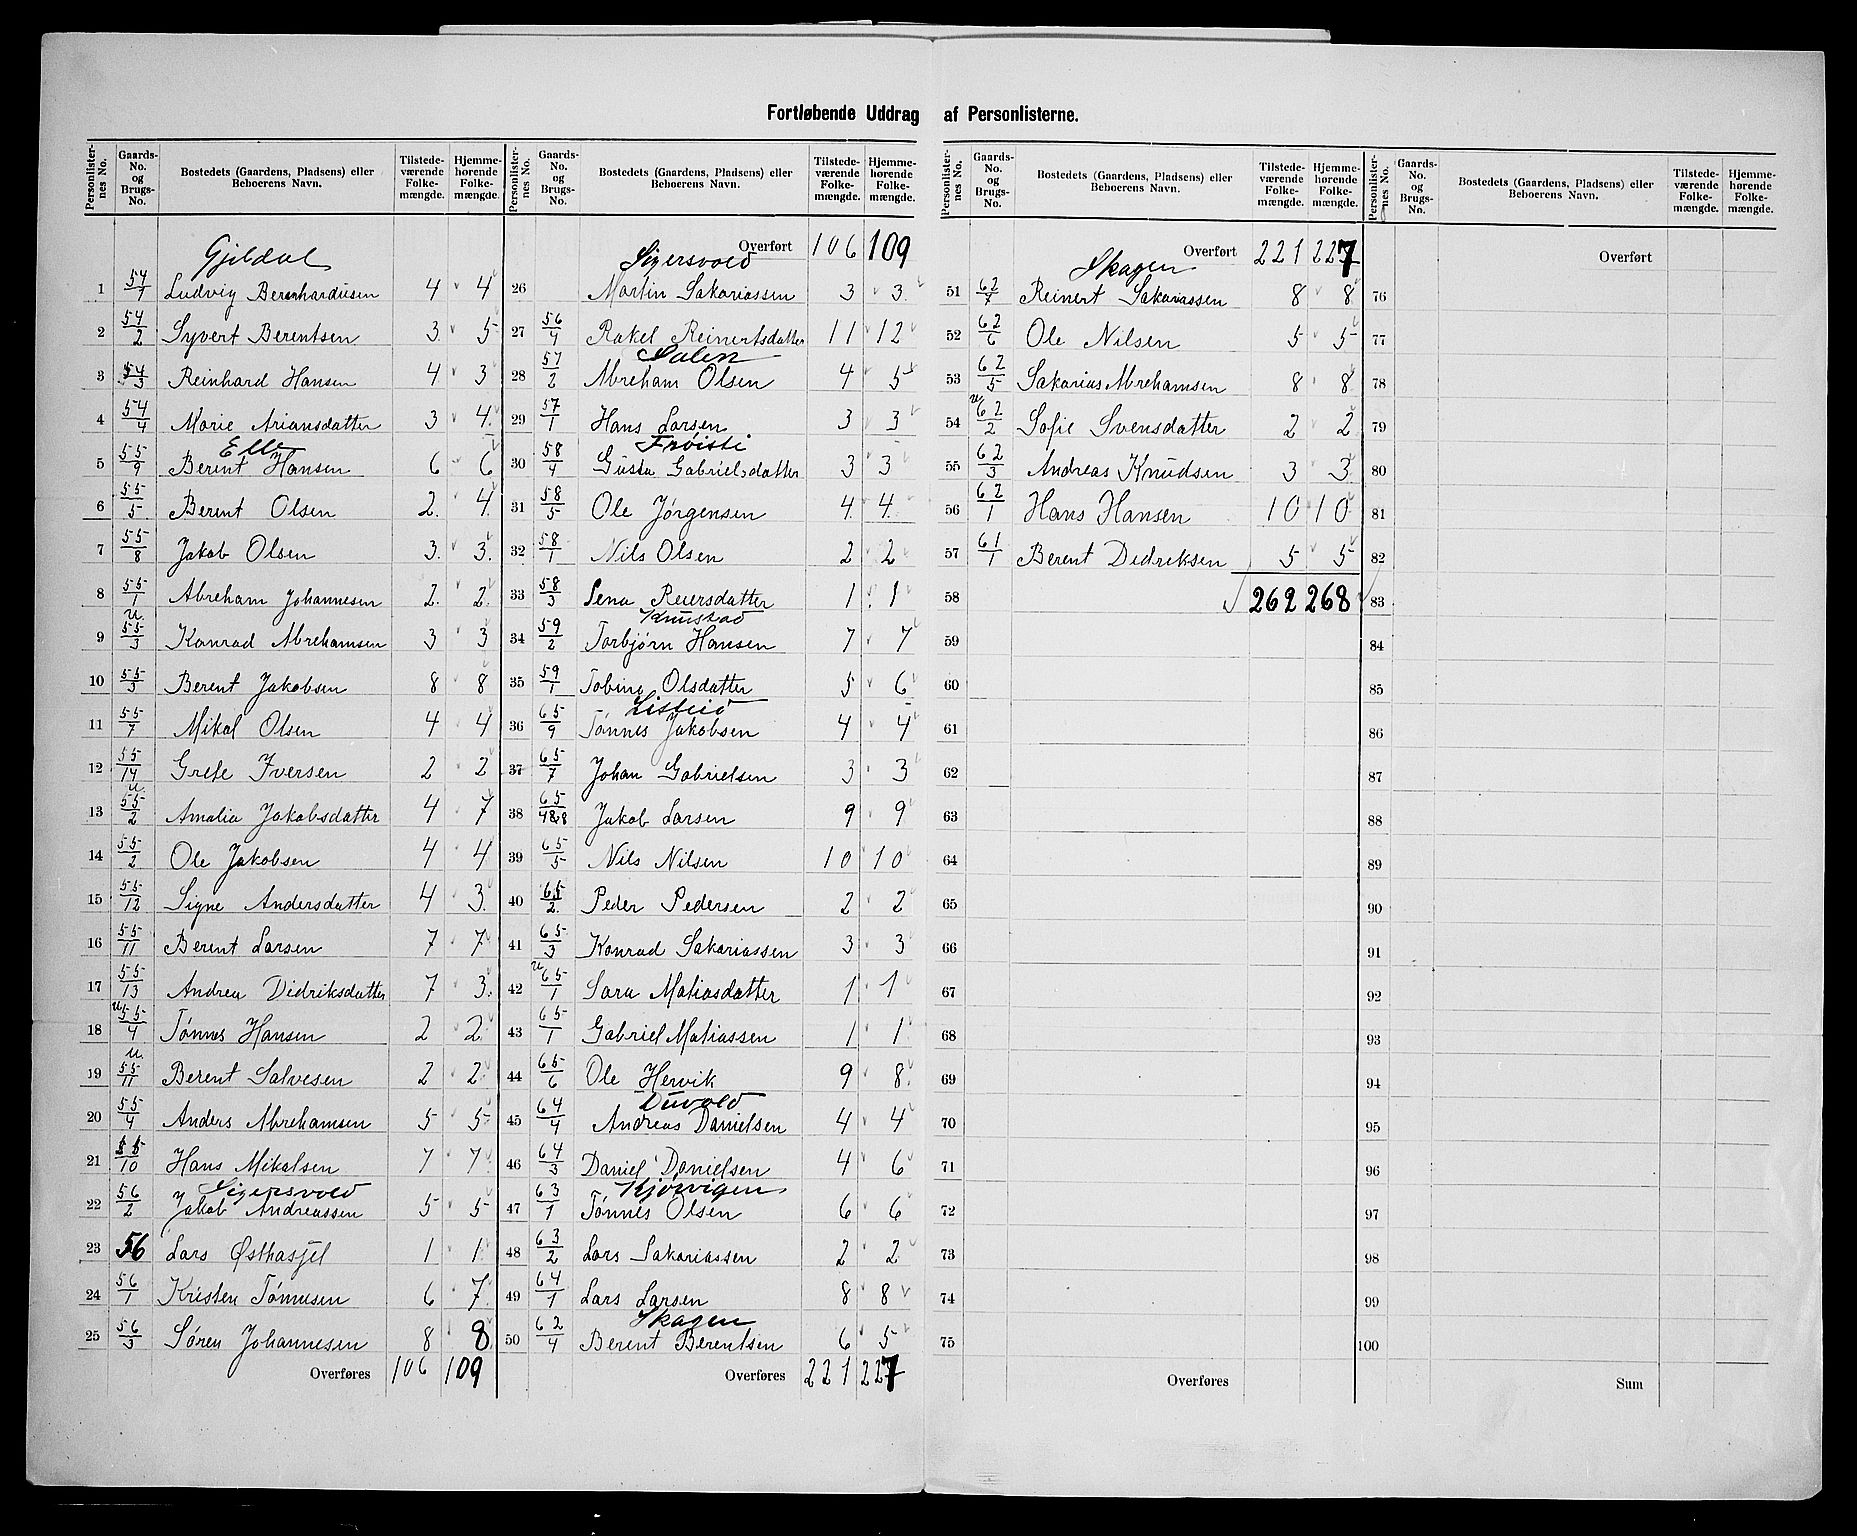 Fortløbende Uddrag af Personlisterne.
Personlister-nes No. Gaards-No. og Brugs-No. Bostedets (Gaardens, Pladsens) eller Beboerens Navn. Tilstede-værende Folke-mængde. Hjemme-hørende Folke-mængde.
Gjildal
1 54/1 Ludvig Berenhardusen 4 4
2 54/2 Syvert Berentsen 3 5
3 54/3 Reinhard Hansen 4 3
4 54/4 Marie Ariansdatter 3 4
Elle
5 55/9 Berent Hansen 6 6
6 55/5 Berent Olsen 2 4
7 55/8 Jakob Olsen 3 3
8 55/1 Abreham Johannesen 2 2
9 u. 55/3 Konrad Abrehamsen 3 3
10 55/3 Berent Jakobsen 8 8
11 55/7 Mikal Olsen 4 4
12 55/14 Grete Iversen 2 2
13 u. 55/2 Amalia Jakobsdatter 4 7
14 55/2 Ole Jakobsen 4 4
15 55/12 Signe Andersdatter 4 3
16 55/11 Berent Larsen 7 7
17 55/13 Andrea Didriksdatter 7 3
18 u 55/4 Tønnes Hansen 2 2
19 u. 55/11 Berent Salvesen 2 2
20 55/4 Anders Abrehamsen 5 5
21 55/10 Hans Mikalsen 7 7
Sigersvold
22 56/2 Jakob Andreassen 5 5
23 56 Lars Østhasjel 1 1
24 56/1 Kristen Tønnesen 6 7
25 56/3 Søren Johannesen 8 8
Overføres 106 109
Personlister-nes No. Gaards-No. og Brugs-No. Bostedets (Gaardens, Pladsens) eller Beboerens Navn. Tilstede-værende Folke-mængde. Hjemme-hørende Folke-mængde.
Overført 106 109
Sigersvold
26 Martin Sakariassen 3 3
27 56/4 Rakel Reinertsdatter 11 12
Dalen
28 57/2 Abreham Olsen 4 5
29 57/1 Hans Larsen 3 3
Frøisti
30 58/4 Gusta Gabrielsdatter 3 3
31 58/5 Ole Jørgensen 4 4
32 58/1 Nils Olsen 2 2
33 58/3 Lena Reiersdatter 1 1
Knustad
34 59/2 Torbjørn Hansen 7 7
35 59/1 Tobine Olsdatter 5 6
Listeid
36 65/9 Tønnes Jakobsen 4 4
37 65/7 Johan Gabrielsen 3 3
38 65/4&8 Jakob Larsen 9 9
39 65/5 Nils Nilsen 10 10
40 65/2 Peder Pedersen 2 2
41 65/3 Konrad Sakariassen 3 3
42 u 65/1 Sara Matiasdatter 1 1
43 65/1 Gabriel Matiassen 1 1
44 65/6 Ole Hervik 9 8
Duvold
45 64/4 Andreas Danielsen 4 4
46 64/3 Daniel Danielsen 4 6
Kjørvigen
47 63/1 Tønnes Olsen 6 6
48 63/2 Lars Sakariassen 2 2
49 64/1 Lars Larsen 8 8
Skagen
50 62/4 Berent Berentsen 6 5
Overføres 221 227
Personlister-nes No. Gaards-No. og Brugs-No. Bostedets (Gaardens, Pladsens) eller Beboerens Navn. Tilstede-værende Folke-mængde. Hjemme-hørende Folke-mængde.
Overført 221 227
Skagen
51 62/7 Reinert Sakariassen 8 8
52 62/6 Ole Nilsen 5 5
53 62/5 Sakarias Abrehamsen 8 8
54 u 62/2 Sofie Svensdatter 2 2
55 62/3 Andreas Knudsen 3 3
56 62/1 Hans Hansen 10 10
57 61/1 Berent Didriksen 5 5
58 262 268
59
60
61
62
63
64
65
66
67
68
69
70
71
72
73
74
75
Overføres
Personlister-nes No. Gaards-No. og Brugs-No. Bostedets (Gaardens, Pladsens) eller Beboerens Navn. Tilstede-værende Folke-mængde. Hjemme-hørende Folke-mængde.
Overført
76
77
78
79
80
81
82
83
84
85
86
87
88
89
90
91
92
93
94
95
96
97
98
99
100
Sum